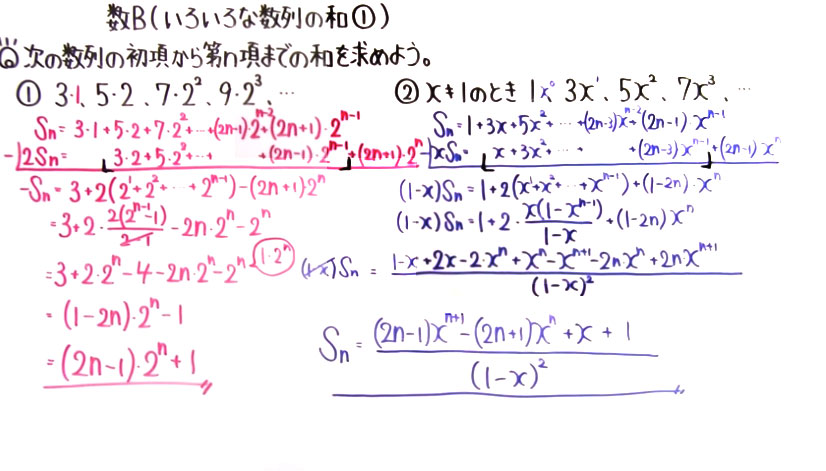 数B(いろいろな数列の和①)
⑥次の数列の初項から第n項までの和を求めよう。
① 3·1、5·2、7·2²、9·2³、…
Sn = 3·1+5·2+7·2²+…+(2n-1)·2ⁿ⁻²+(2n+1)·2ⁿ⁻¹
-)2Sn = 3·2+5·2²+… +(2n-1)·2ⁿ⁻¹+(2n+1)·2ⁿ
-Sn = 3+2(2¹+2²+…+2ⁿ⁻¹)-(2n+1)2ⁿ
=3+2·2(2ⁿ⁻¹-1)/2-1 -2n·2ⁿ-2ⁿ
=3+2·2ⁿ-4-2n·2ⁿ-2ⁿ 1·2ⁿ
=(1-2n)·2ⁿ-1
=(2n-1)·2ⁿ+1
② x≠1のとき 1x⁰、3x¹、5x²、7x³、…
Sn=1+3x+5x²+…+(2n-3)xⁿ⁻²+(2n-1)xⁿ⁻¹
-)xSn= x+3x²+… +(2n-3)xⁿ⁻¹+(2n-1)xⁿ
(1-x)Sn=1+2(x¹+x²+…+xⁿ⁻¹)+(1-2n)·xⁿ
(1-x)Sn=1+2·x(1-xⁿ⁻¹)/1-x+(1-2n)xⁿ
(1-x)Sn = 1-x+2x-2·xⁿ+xⁿ-xⁿ⁺¹-2n·xⁿ+2n·xⁿ⁺¹/(1-x)²
Sn = (2n-1)xⁿ⁺¹-(2n+1)xⁿ+x+1/(1-x)²